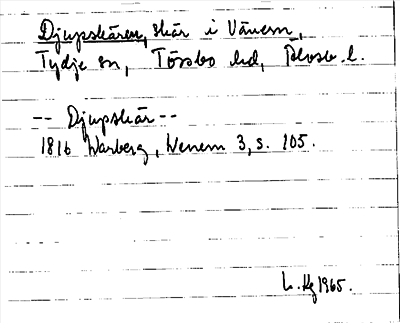 Djupskären, skär i Vänern,
Tydje sn, Tössbo hd, Älvsb. l.
-- Djupskär --
1816 Warberg, Wenern 3, s. 105.
1965.